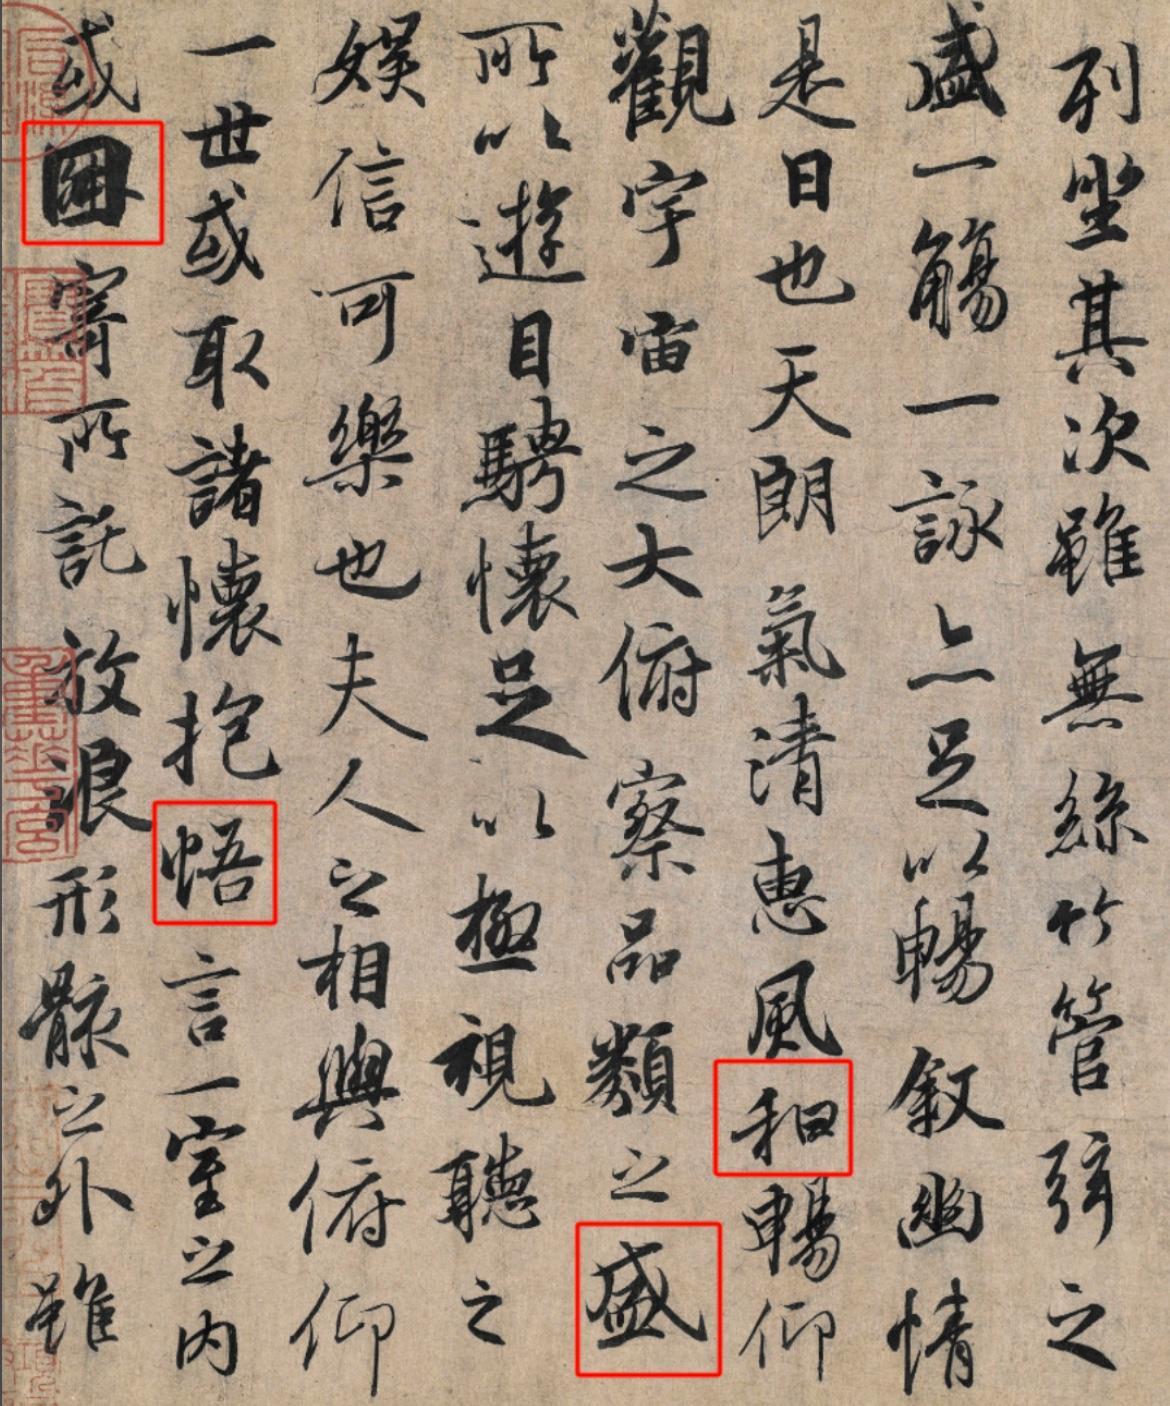 列坐其次雖無絲竹管弦之
盛一觴一詠亦足以暢叙幽情
是日也天朗氣清惠風和暢仰
觀宇宙之大俯察品類之盛
所以遊目騁懷足以極視聽之
娛信可樂也夫人之相與俯仰
一世或取諸懷抱悟言一室之内
或因寄所託放浪形骸之外雖